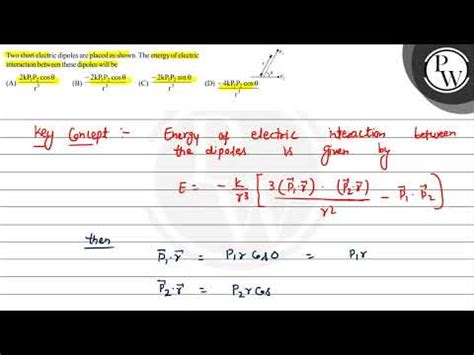 Two short electric dipoles are placed as shown. The energy of electric
interaction between these dipoles will be
(A) 2kP₁P₂ cos θ / r³ (B) −2kP₁P₂ cos θ / r³ (C) −2kP₁P₂ sin θ / r³ (D) −4kP₁P₂ cos θ / r³
P
W
Key Concept :- Energy of electric interaction between
the dipoles is given by
E = − k/r³ [ 3(P⃗₁·r⃗)·(P⃗₂·r⃗) / r² − P⃗₁·P⃗₂ ]
then
P⃗₁·r⃗ = P₁r Cos0 = P₁r
P⃗₂·r⃗ = P₂r Cos